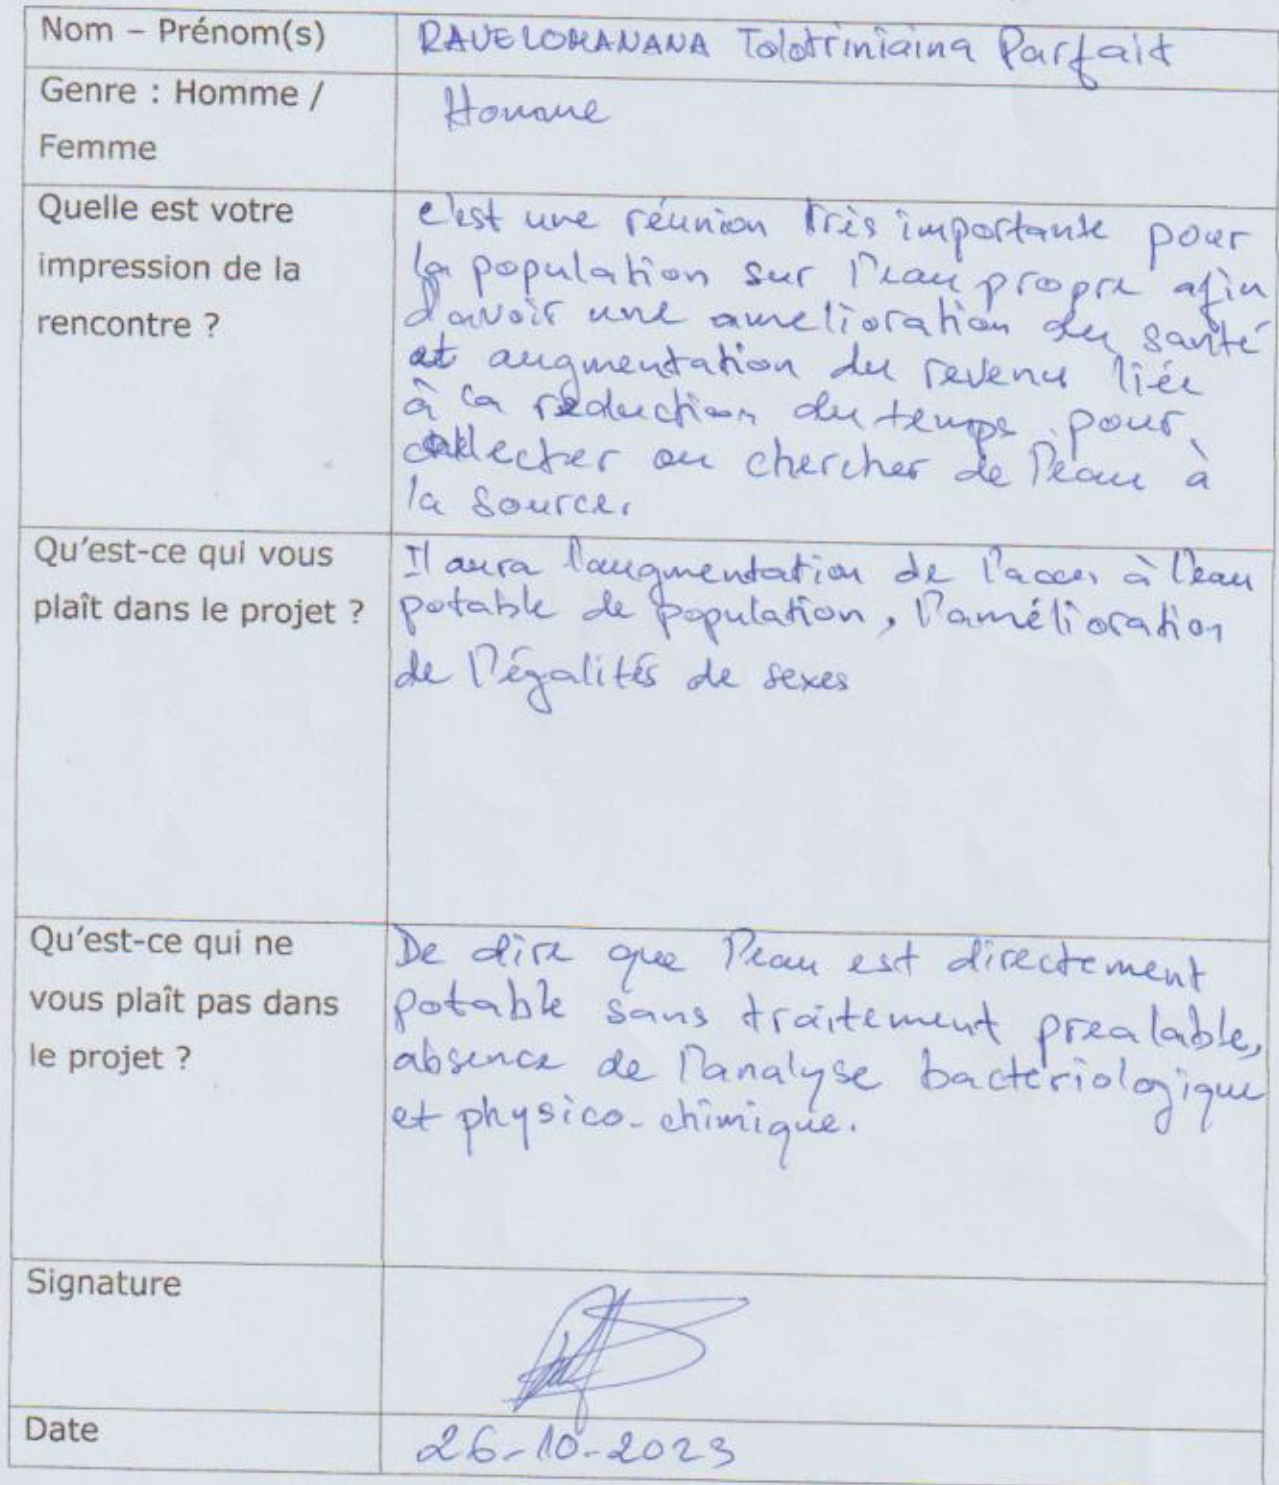 Nom – Prénom(s)
RAVELOMANANA Tolotriniaina Parfait
Genre : Homme /
Femme
Homme
Quelle est votre
impression de la
rencontre ?
c'est une réunion très importante pour
la population sur l'eau propre afin
d'avoir une amelioration du santé
et augmentation du revenu liée
à la réduction du temps pour
collecter ou chercher de l'eau à
la source.
Qu'est-ce qui vous
plaît dans le projet ?
Il aura l'augmentation de l'acces à l'eau
potable de population, l'amélioration
de l'égalités de sexes
Qu'est-ce qui ne
vous plaît pas dans
le projet ?
De dire que l'eau est directement
potable sans traitement prealable,
absence de l'analyse bactériologique
et physico-chimique.
Signature
Date
26-10-2023